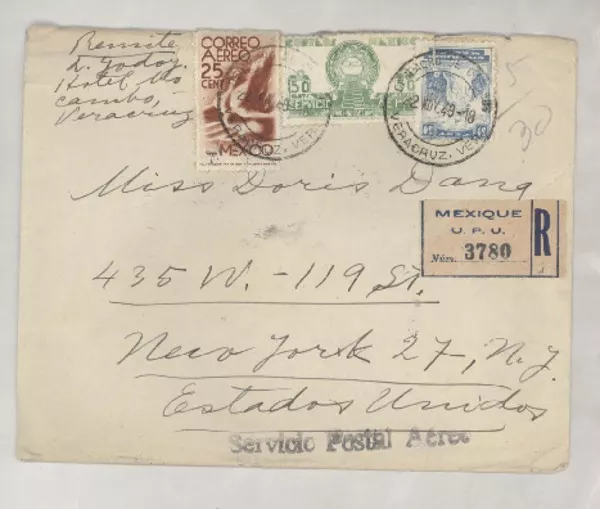 Remite
L. Godoy.
Hotel Mo
cambo,
Veracruz
CORREO
AEREO
25
CENT
MEXICO
50
MEXICO
VERACRUZ, VER
22 NOV. 49-18
VERACRUZ, VER
5
30
Miss Doris Dana
MEXIQUE
U. P. U.
Núm. 3780
R
435 W. - 119 St.
New York 27-, N.Y.
Estados Unidos
Servicio Postal Aéreo